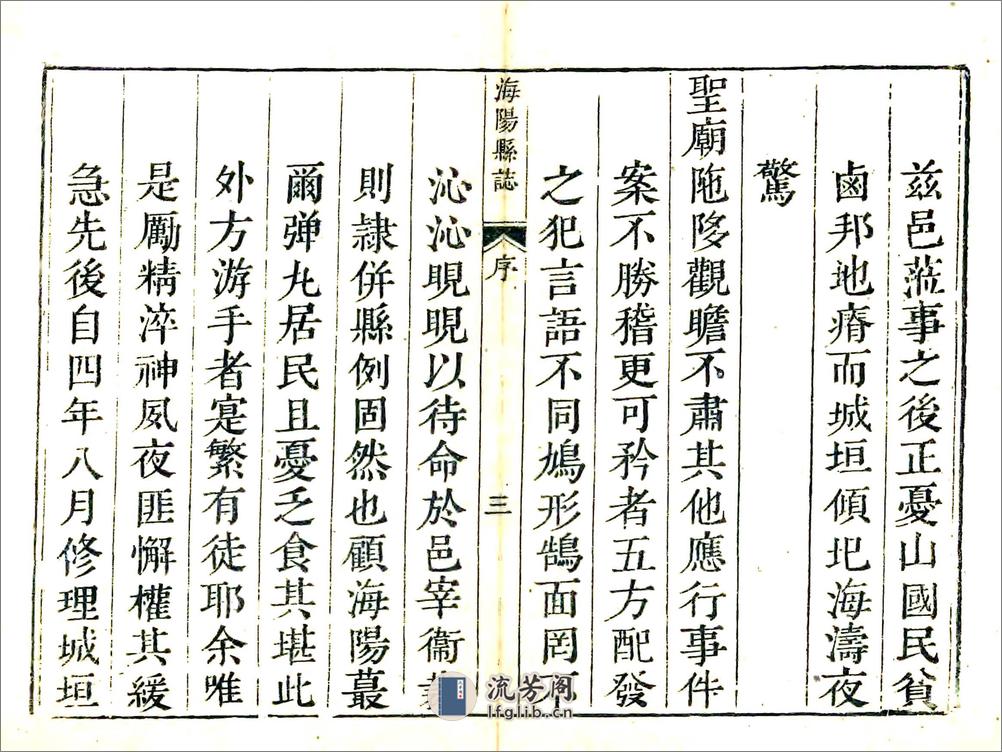 茲邑蒞事之後正憂山國民貧
鹵邦地瘠而城垣傾圯海濤夜
驚
聖廟陁陊觀瞻不肅其他應行事件
案不勝稽更可矜者五方配發
之犯言語不同鳩形鵠面罔不
海陽縣誌
序
三
沁沁睍睍以待命於邑宰衞
則隷併縣例固然也顧海陽蕞
爾弹丸居民且憂乏食其堪此
外方游手者寔繁有徒耶余唯
是勵精淬神夙夜匪懈權其緩
急先後自四年八月修理城垣
流芳阁
lfglib.cn